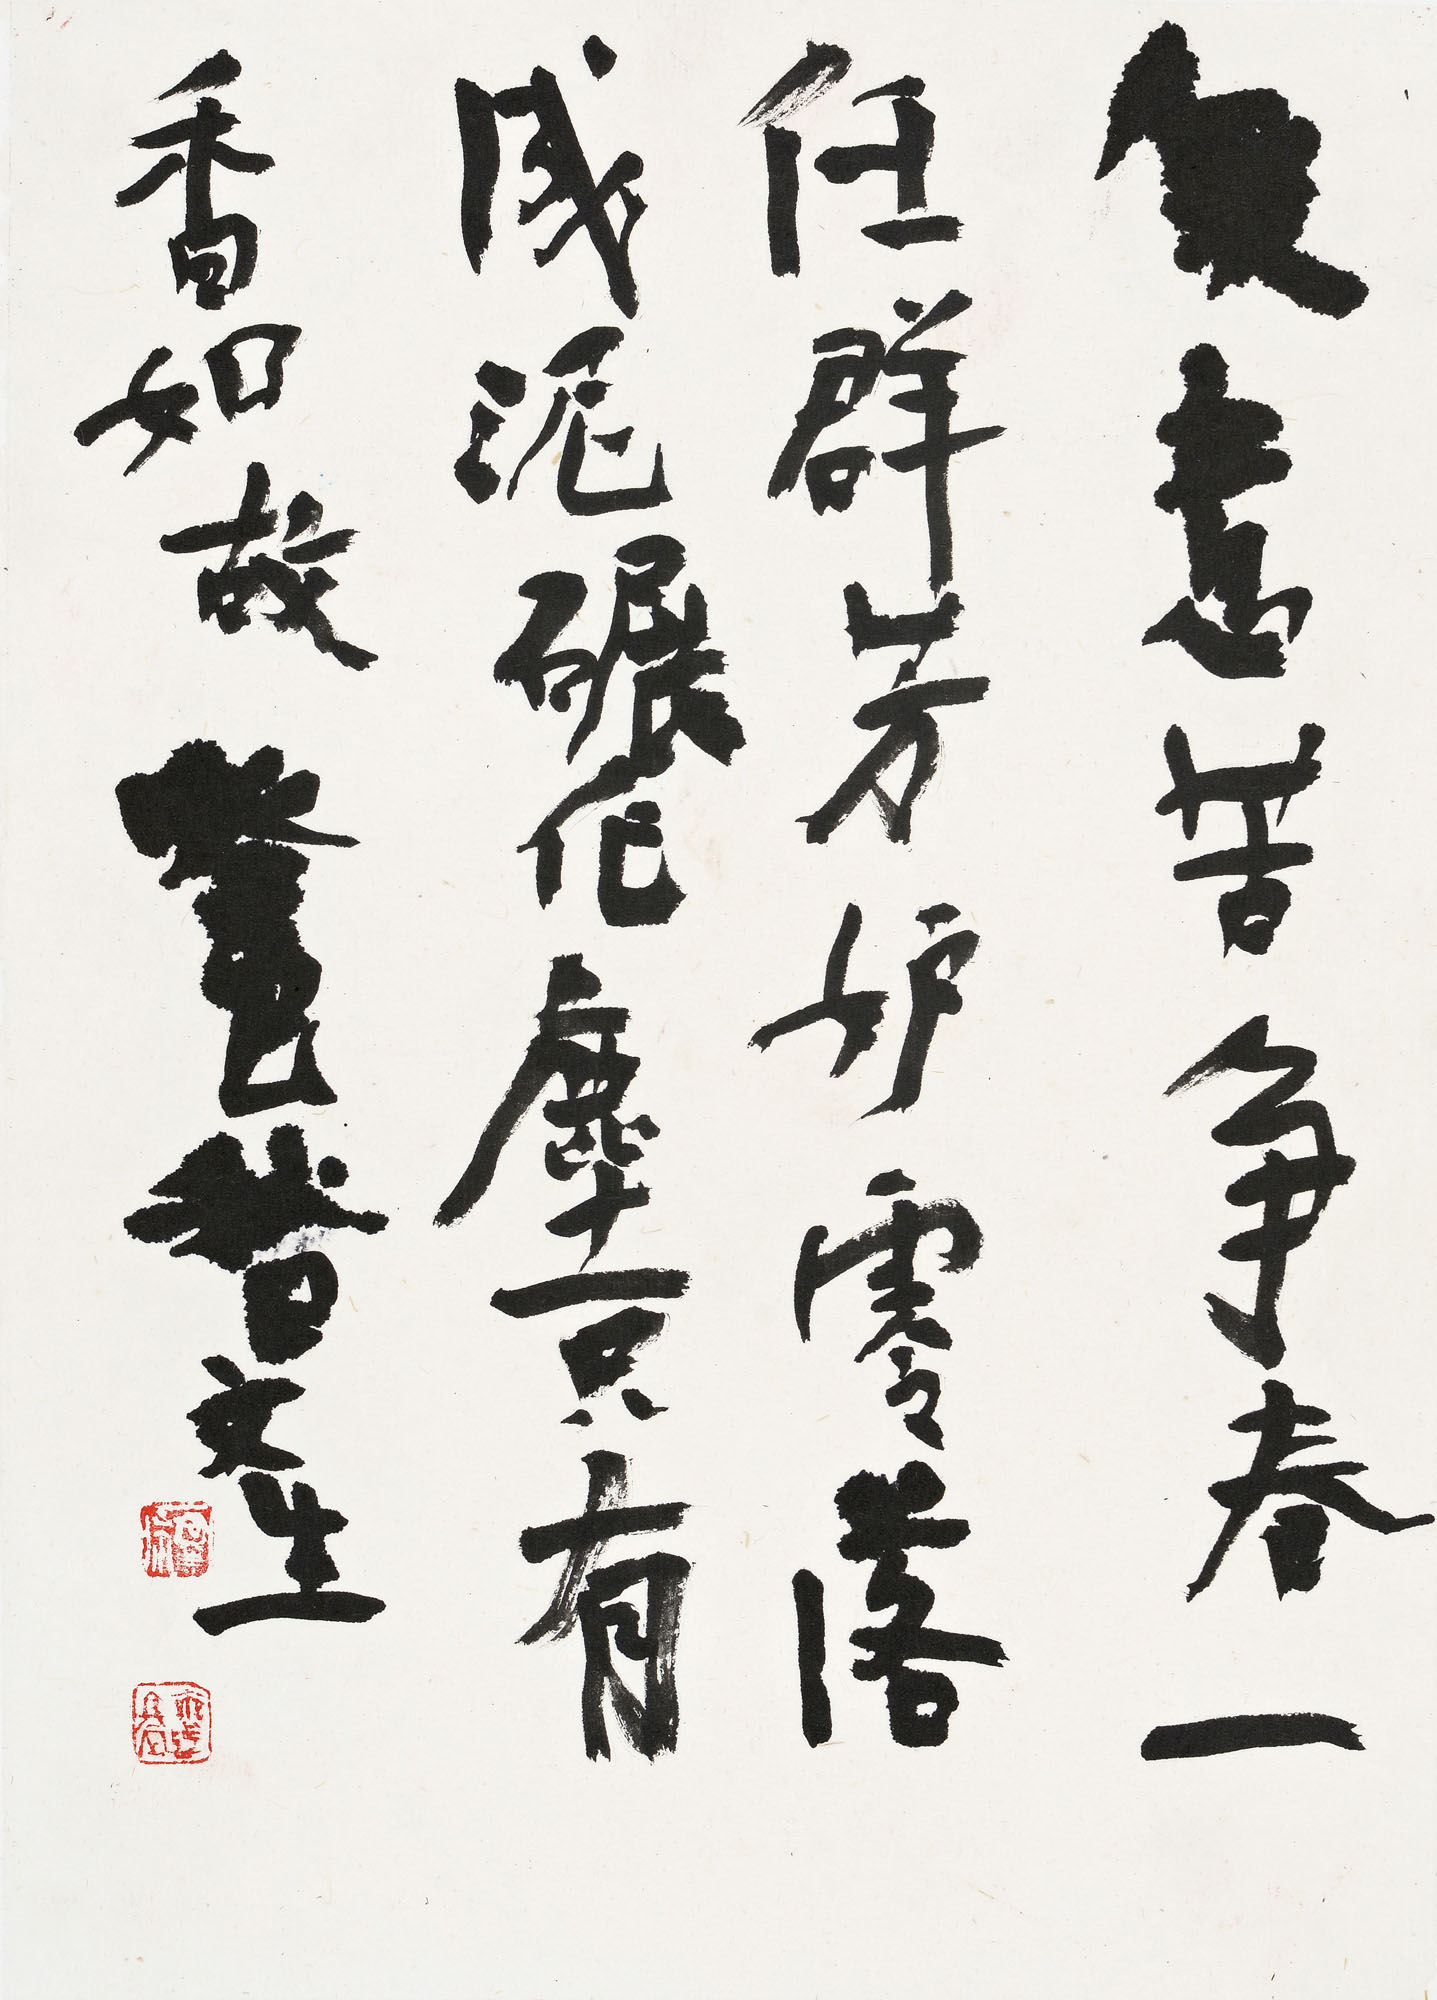 無意苦争春一
任群芳妒零落
成泥碾作塵只有
香如故 文生